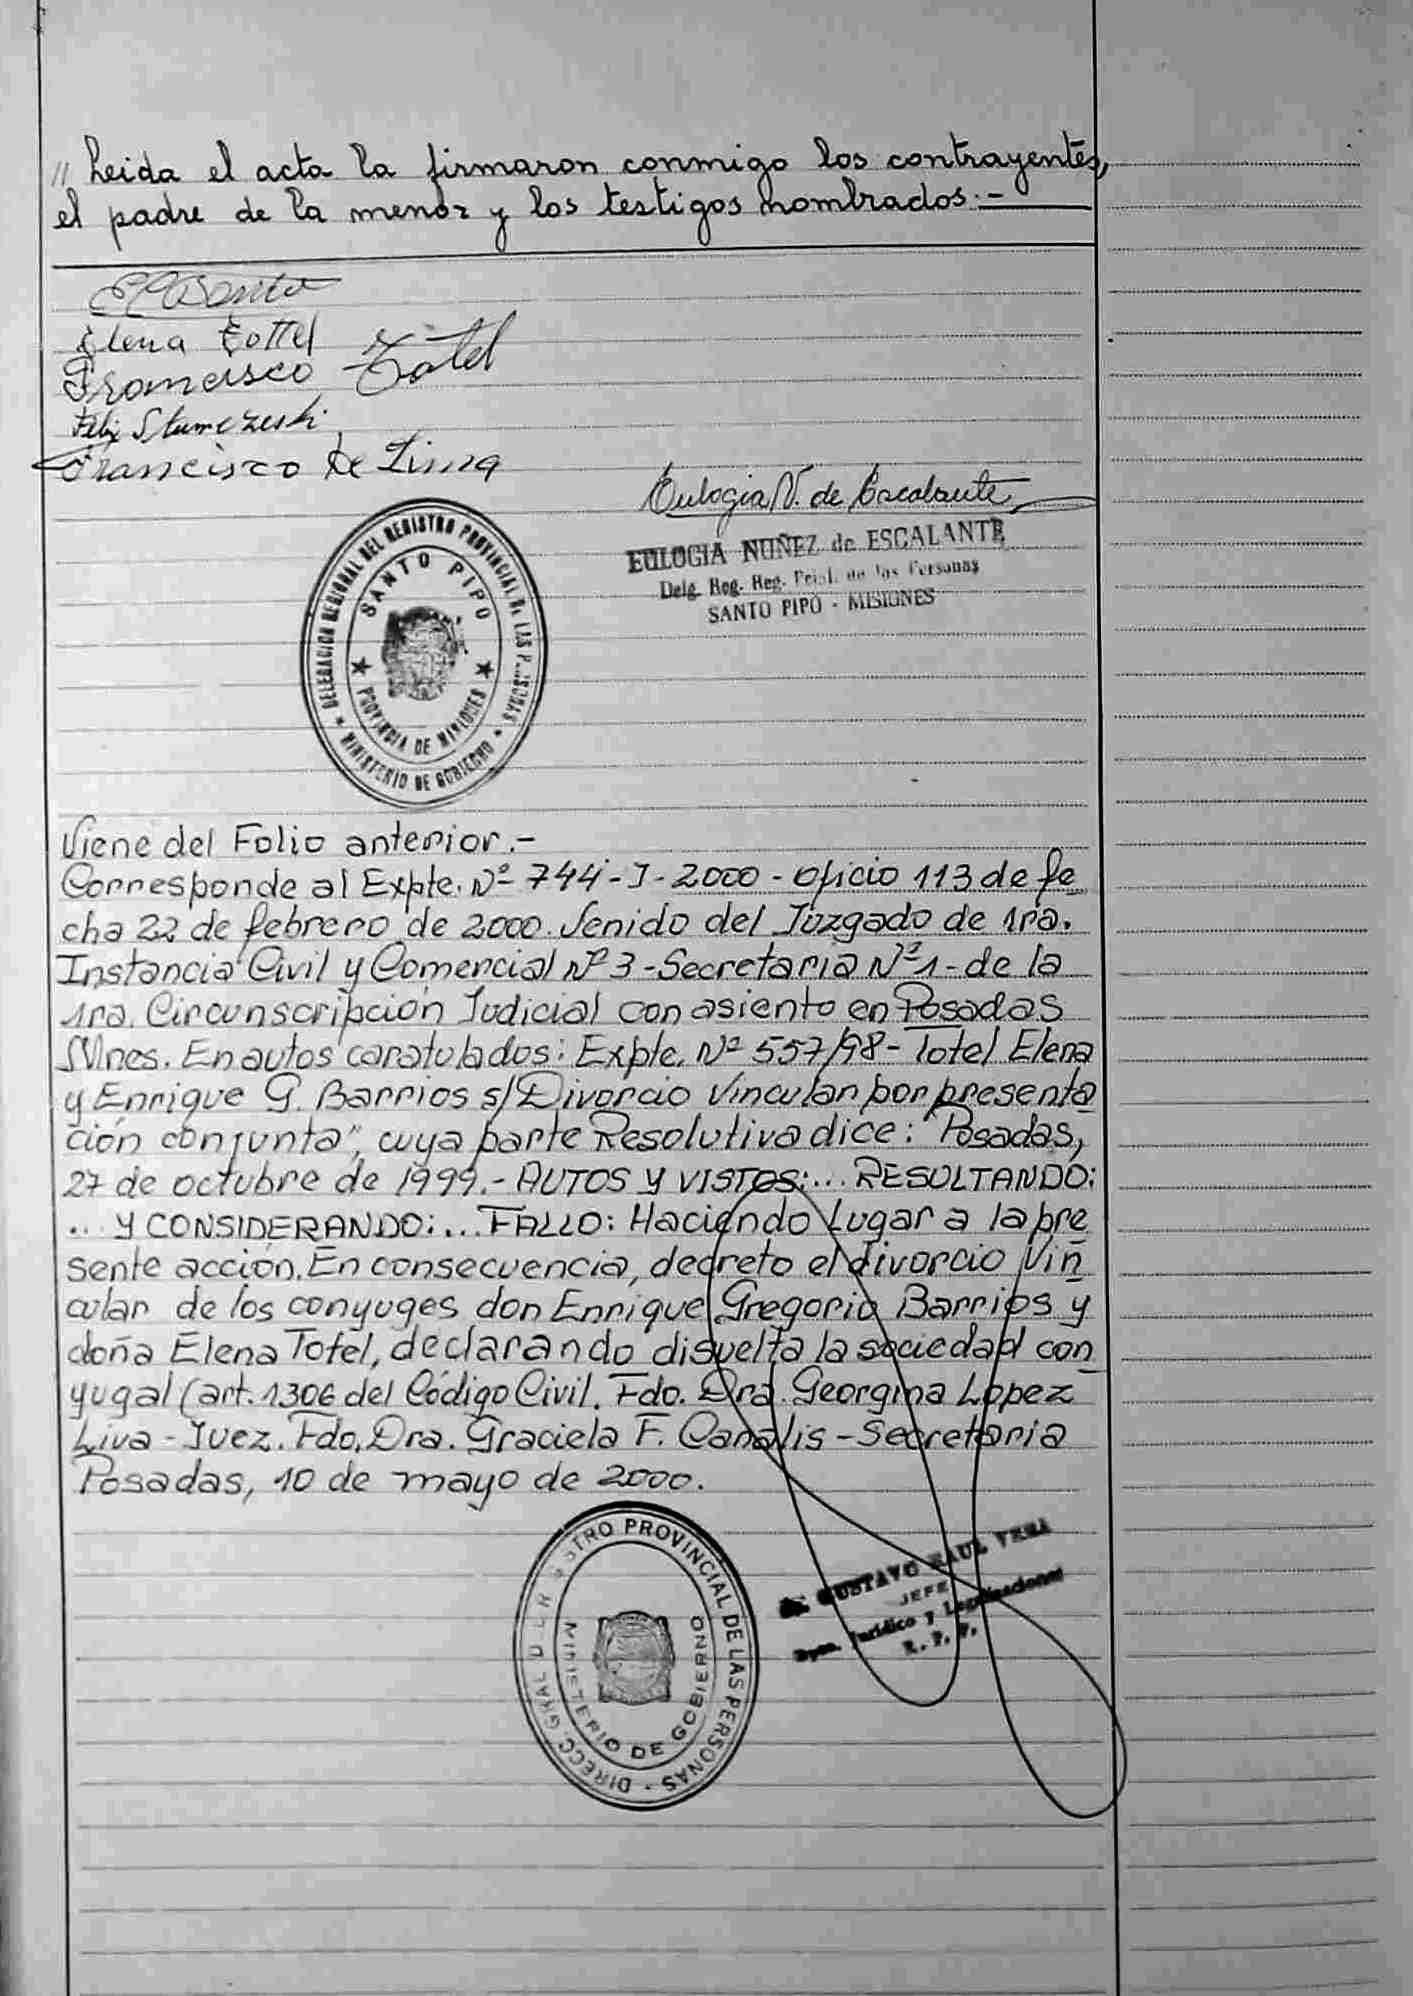 // Leida el acta la firmaron conmigo los contrayentes,
el padre de la menor y los testigos nombrados.-
Elena Tottel
Francisco Totel
Felix
Francisco de Lima
Eulogia N. de Escalante
EULOGIA NUÑEZ de ESCALANTE
Delg. Reg. Reg. Pcial. de las Personas
SANTO PIPÓ - MISIONES
DELEGACION REGIONAL DEL REGISTRO PROVINCIAL DE LAS PERSONAS
SANTO PIPO
PROVINCIA DE MISIONES
MINISTERIO DE GOBIERNO
Viene del Folio anterior.-
Corresponde al Expte. Nº 744-I-2000 - Oficio 113 de fe
cha 22 de febrero de 2000. Venido del Juzgado de 1ra.
Instancia Civil y Comercial Nº 3 - Secretaria Nº 1 - de la
1ra. Circunscripción Judicial con asiento en Posadas
Mnes. En autos caratulados: Expte. Nº 557/98 - Totel Elena
y Enrique G. Barrios s/ Divorcio Vincular por presenta
ción conjunta", cuya parte Resolutiva dice: "Posadas,
27 de octubre de 1999.- AUTOS Y VISTOS:... RESULTANDO:
... Y CONSIDERANDO:... FALLO: Haciendo Lugar a la pre
sente acción. En consecuencia, decreto el divorcio Vin
cular de los conyuges don Enrique Gregorio Barrios y
doña Elena Totel, declarando disuelta la sociedad con
yugal (art. 1306 del Código Civil. Fdo. Dra. Georgina López
Liva - Juez. Fdo. Dra. Graciela F. Canalis - Secretaria
Posadas, 10 de mayo de 2000.
DIRECC. GRAL DEL REGISTRO PROVINCIAL DE LAS PERSONAS
MINISTERIO DE GOBIERNO
Dr. GUSTAVO RAUL VERA
JEFE
Dpto. Jurídico y Legalizaciones
R. P. P.